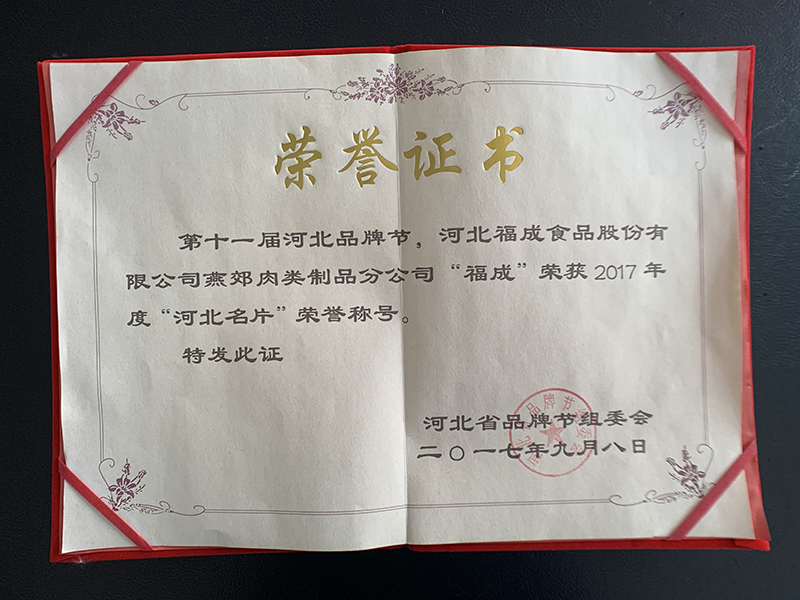 荣誉证书
第十一届河北品牌节，河北福成食品股份有
限公司燕郊肉类制品分公司“福成”荣获2017年
度“河北名片”荣誉称号。
特发此证
河北省品牌节组委会
二〇一七年九月八日